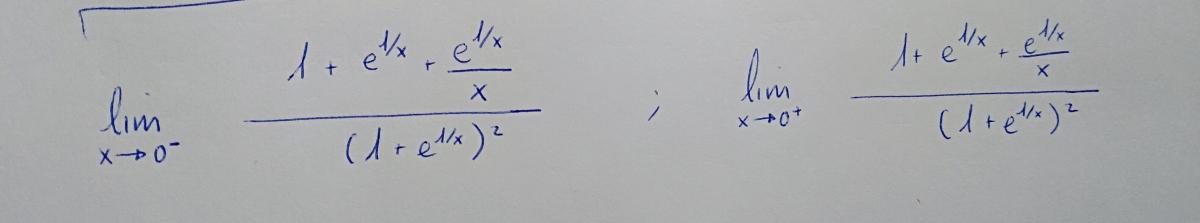 lim x→0⁻ (1 + e^{1/x} + e^{1/x}/x) / (1 + e^{1/x})² ; lim x→0⁺ (1 + e^{1/x} + e^{1/x}/x) / (1 + e^{1/x})²